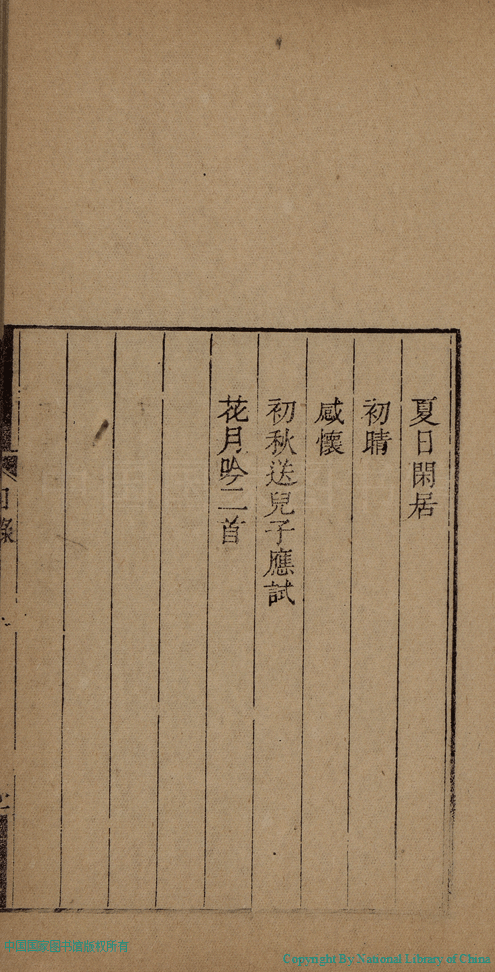 夏日閑居
初晴
感懷
初秋送兒子應試
花月吟二首
目錄
中国国家图书馆版权所有
Copyright By National Library of China